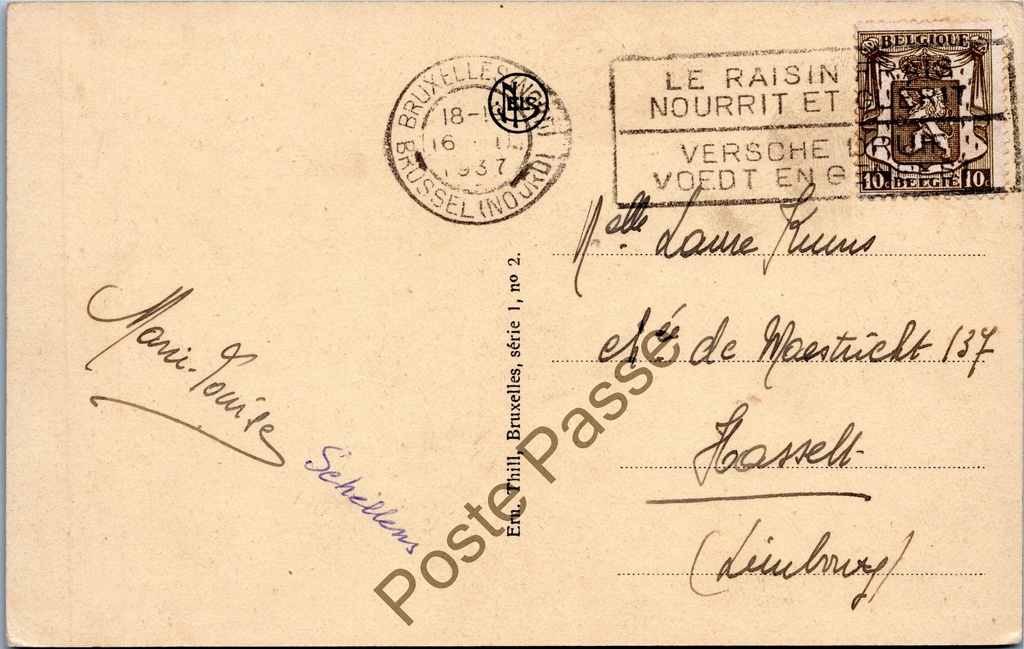 BRUXELLES (NORD)
18-
16
1937
BRUSSEL (NOORD)
NELS
LE RAISIN FRAIS
NOURRIT ET GUERIT
VERSCHE DRUIF
VOEDT EN GENEEST
BELGIQUE
10c BELGIË 10c
Melle Laure
Chée de Maestricht 137
Hasselt
(Limbourg)
Marie-Louise
Schellens
Ern. Thill, Bruxelles, série 1, no 2.
Poste Passé